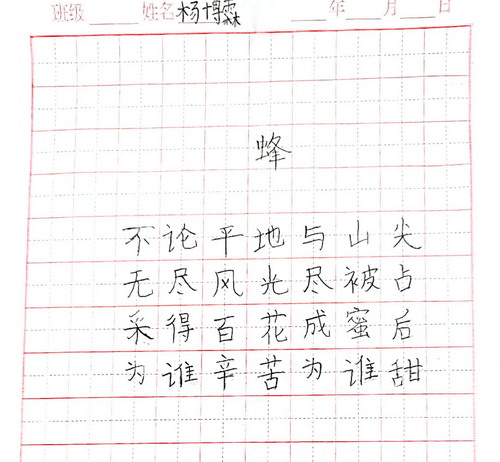 班级 姓名杨博霖 年 月 日
蜂
不论平地与山尖
无尽风光尽被占
采得百花成蜜后
为谁辛苦为谁甜